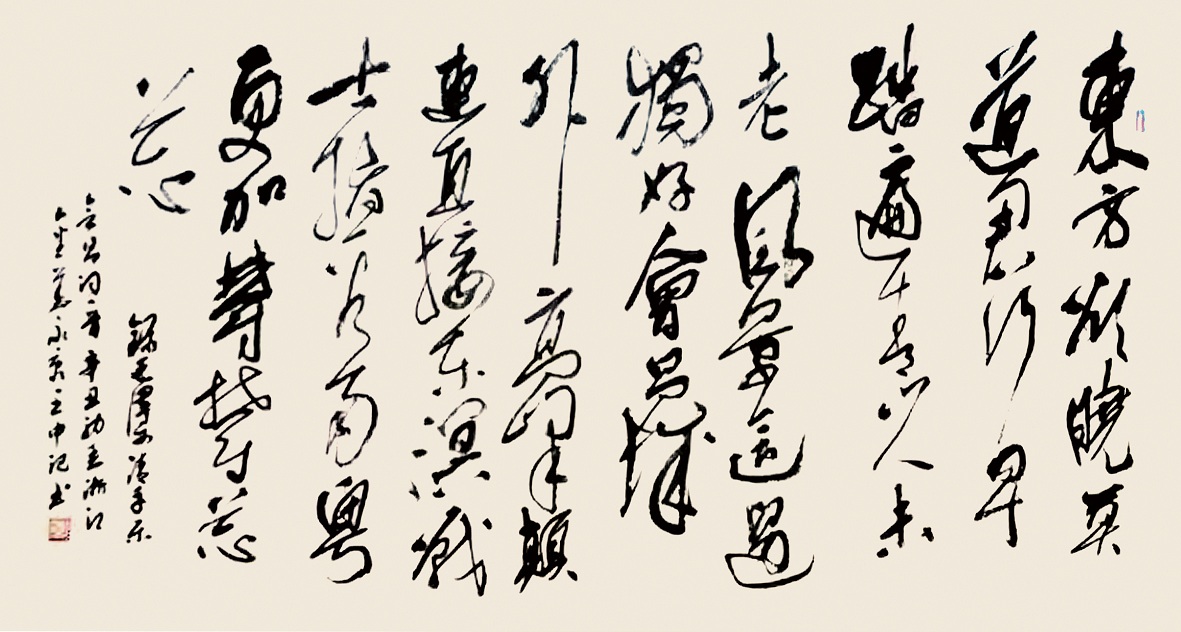 東方欲曉莫
道君行早
踏遍青山人未
老風景這邊
獨好會昌城
外高峰顛
連直接東溟戰
士指看南粵
更加鬱鬱葱
葱
錄毛澤東清平樂
會昌詞一首辛丑初夏浙江